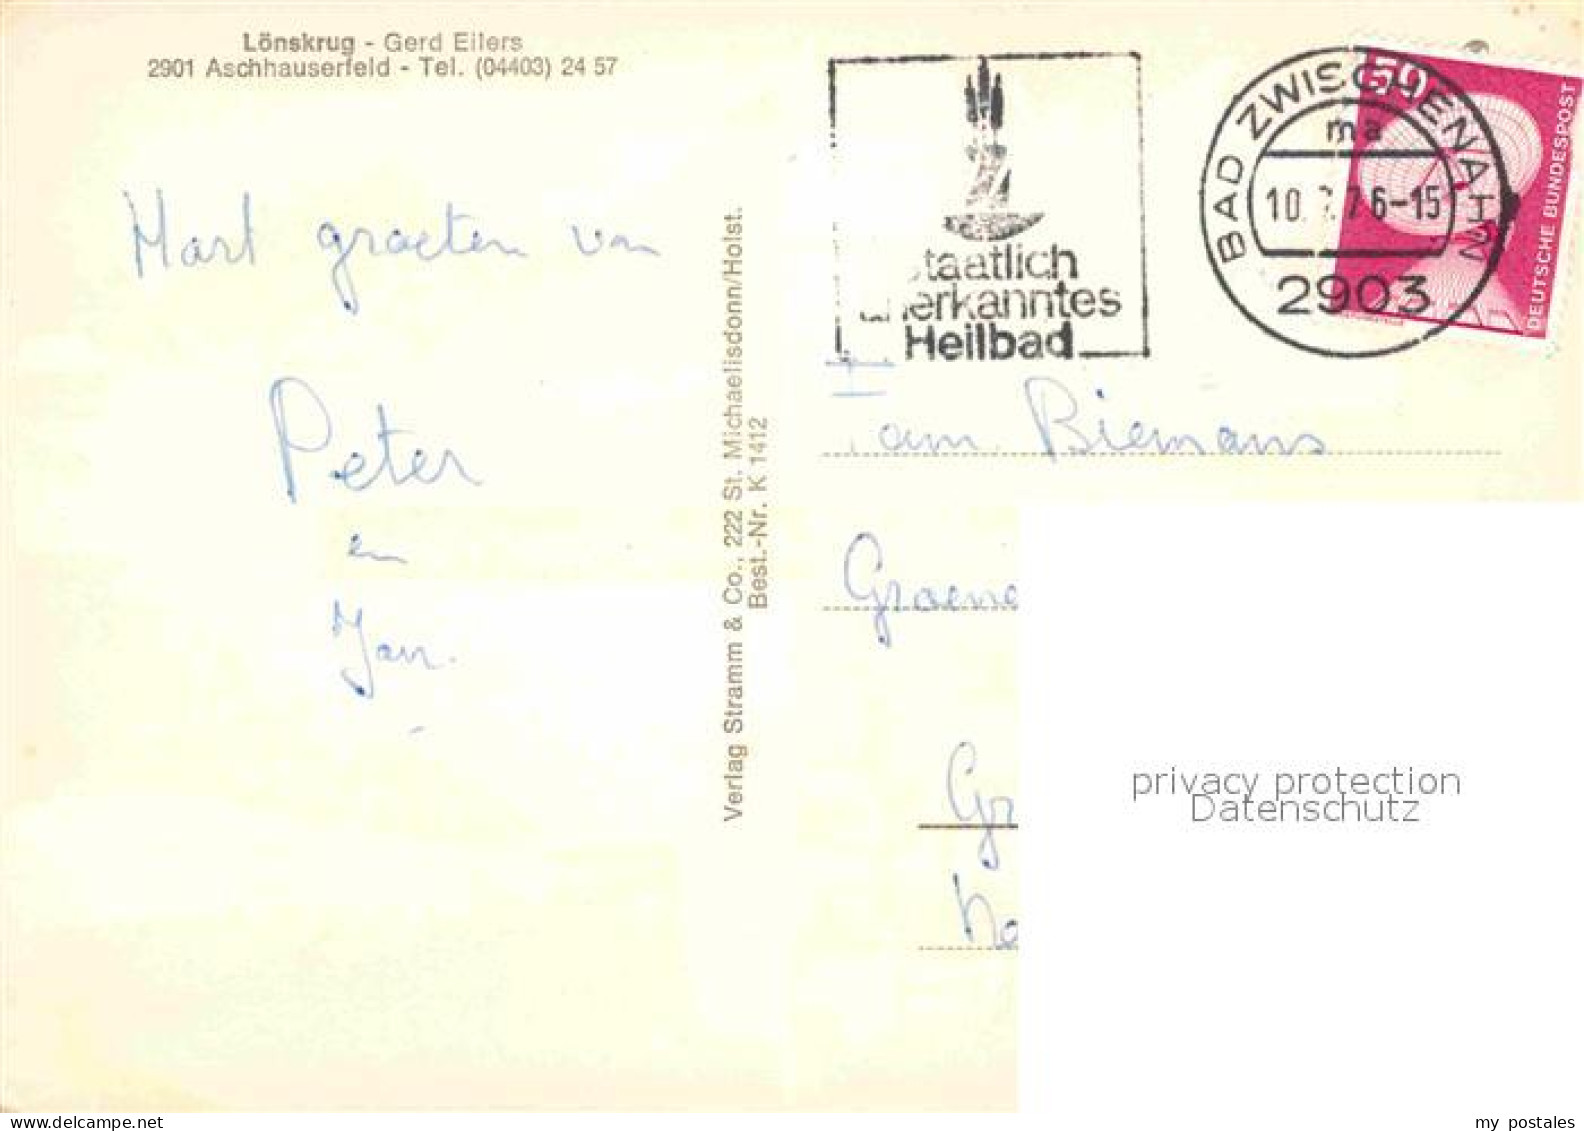 Lönskrug - Gerd Eilers
2901 Aschhauserfeld - Tel. (04403) 24 57
Hart groeten van
Peter
en
Jan.
Verlag Stramm & Co., 222 St. Michaelisdonn/Holst.
Best.-Nr. K 1412
Staatlich
anerkanntes
Heilbad
BAD ZWISCHENAHN
ma
10. 7.76-15
2903
50
DEUTSCHE BUNDESPOST
Fam. Biemans
Groene
Gr
privacy protection
Datenschutz
www.delcampe.net
my postales